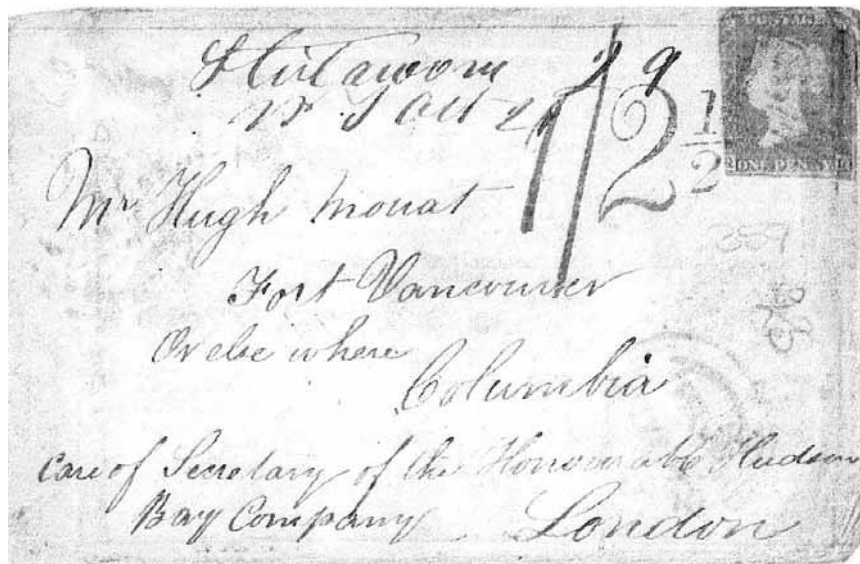 POSTAGE
ONE PENNY
2 9
1/ 2 1/2
Mr Hugh Mouat
Fort Vancouver
Or else where
Columbia
Care of Secretary of the Honourable Hudson
Bay Company London